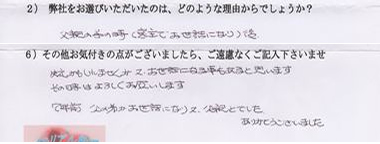 2) 弊社をお選びいただいたのは、どのような理由からでしょうか?
父親の時(家全てお世話になり)
6) その他お気付きの点がございましたら、ご遠慮なくご記入下さいませ
かもしれませんが又お世話になる事もあると思います
その時はよろしくお願いします
父の弟がお世話になり又、父親とでした
ありがとうございました